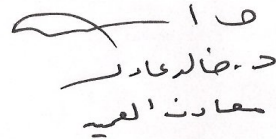 د. خالد عادل
معاون العميد